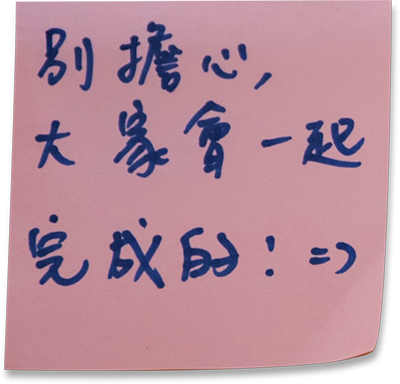 別擔心,
大家會一起
完成的! =)